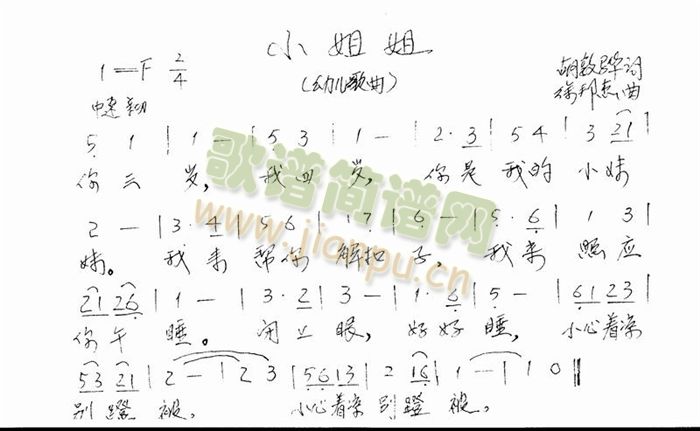 小姐姐
(幼儿歌曲)
1=F 2/4
词
曲
中速
5 1 | 1 - | 5 3 | 1 - | 2· 3 | 5 4 | 3 21 |
你三岁, 我四岁, 你是我的小妹
2 - | 3· 4 | 5 6 | 1 7 | 6 - | 5· 6 | 1 3 |
妹。 我来帮你解扣子, 我来照应
21 26 | 1 - | 3· 2 | 3 - | 1· 6 | 5 - | 61 23 |
你午睡。 闭上眼, 好好睡, 小心着凉
53 21 | 2 - | 2 3 | 56 13 | 2 16 | 1 - | 1 0 ‖
别蹬被, 小心着凉别蹬被。
歌谱简谱网
www.jianpu.cn